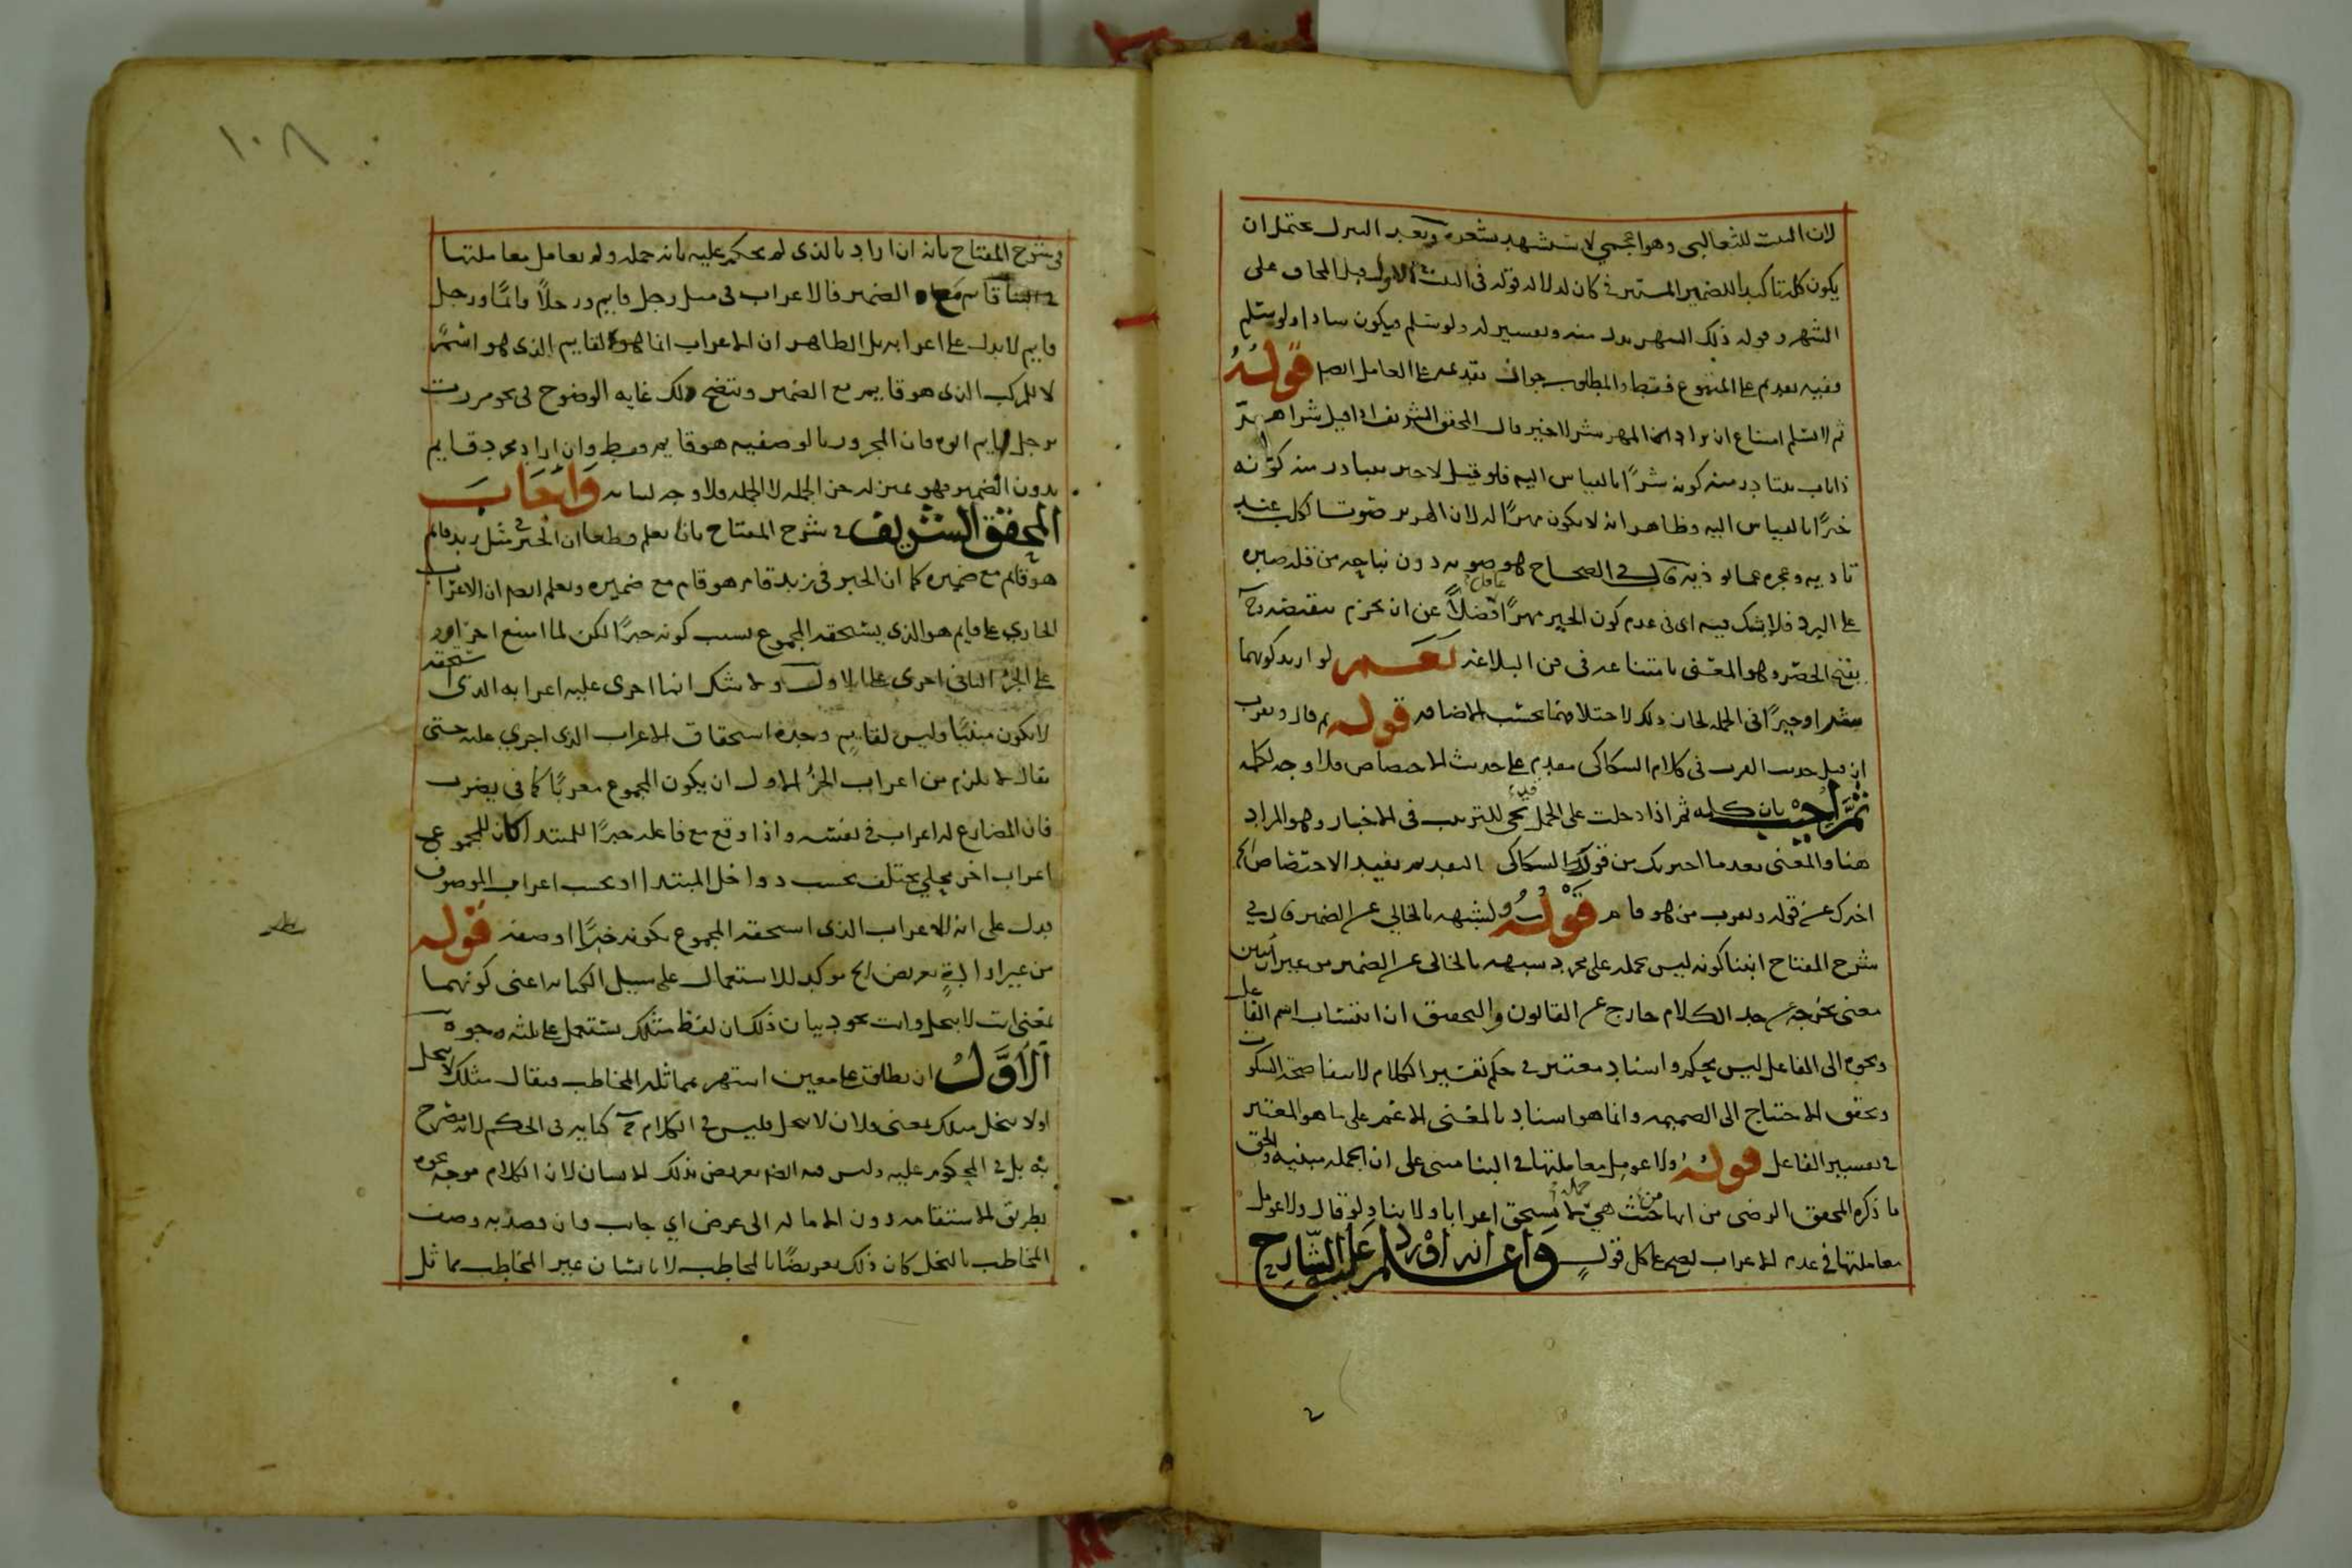 لان البيت للثعالبي وهو اعجمي لا يستشهد بشعره وبعد التنزل يحتمل ان
يكون كلة تاكيدا للضمير المستتر في كان لدلالة قوله في البيت الاول قبل المحاق على
الشهر وقوله ذلك الشهر بدل منه وتفسير له ولو سلم فيكون شاذا ولو سلم
ففيه تقديم على المتبوع فقط والمطلوب جواز تقديمه على العامل ايضا قوله
ثم لا نسلم امتناع ان يراد ان المهر شر لا خير قال المحقق الشريف اذا قيل شر اهر
ذا ناب يتبادر منه كونه شرا بالقياس اليه فلو قيل لا خير يتبادر منه كونه
خيرا بالقياس اليه وظاهر انه لا يكون مهرا له لان الهرير صوت الكلب عند
تاديه وعجزه عما يوذيه قال في الصحاح هو صوته دون نباحه من قلة صبره
على البرد فلا شك فيه اي في عدم كون الخير مهرا فضلا عن ان يجزم بنقيضه
يقبح الحصر وهو المعنى بامتناعه في فن البلاغة نعم لو اريد كونهما
شرا وخيرا في الجملة لجاز ذلك لاختلافهما بحسب الاضافة قوله ثم قال ويقرب
ان قيل حديث القرب في كلام السكاكي مقدم على حديث الاختصاص فلا وجه لكلمة
ثم اجيب بان كلمة ثم اذا دخلت على الجمل يجئ للترتيب في الاخبار وهو المراد
هنا والمعنى بعدما اخبرتك من قول السكاكي التقديم يفيد الاختصاص الخ
اخبرك عن قوله ويقرب من هو قام قوله ولشبهه بالخالي عن الضمير قال في
شرح المفتاح ابتنا كونه ليس بجملة على مجرد شبهه بالخالي عن الضمير من غير ان يبين
معنى يخرجه عن حد الكلام خارج عن القانون والتحقيق ان انتساب اسم الفاعل
ونحوه الى الفاعل ليس بحكم واسناد معتبر في حكم تفسير الكلام لانتفا صحة السكوت
وتحقق الاحتياج الى الضميمة وانما هو اسناد بالمعنى الاعم على ما هو المعتبر
في تفسير الفاعل قوله ولا عومل معاملتها في البنا مبنى على ان الجملة مبنية والحق
ما ذكره المحقق الرضي من انها من حيث هي جملة لا تستحق اعرابا ولا بنا ولو قال ولا عومل
معاملتها في عدم الاعراب لصح على كل قول واعلم انه اورد على الشارح
١٠٨
في شرح المفتاح بانه ان اراد بالذي لم يحكم عليه بانه جملة ولم يعامل معاملتها
في البنا قائم مع الضمير فالاعراب في مثل رجل قايم ورجلا قائما ورجل
قايم لا يدل على اعرابه بل الظاهر ان الاعراب انما هو لقايم الذي هو اسم
لا للمركب الذي هو قايم مع الضمير ويتضح ذلك غاية الوضوح في نحو مررت
برجل قايم ابوه فان المجرور بالوصفية هو قايم فقط وان اراد مجرد قايم
بدون الضمير فهو بمنزلة جزء الجملة لا الجملة فلا وجه لبنائه واجاب
المحقق الشريف في شرح المفتاح بانا نعلم قطعا ان الخبر في مثل زيد قايم
هو قايم مع ضميره كما ان الخبر في زيد قام هو قام مع ضميره ونعلم ايضا ان الاعراب
الجاري على قايم هو الذي يستحقه المجموع بسبب كونه خبرا لكن لما امتنع اجراؤه
على الجزء الثاني اجرى على الاول ولا شك انما اجرى عليه اعرابه الذي يستحقه
لا يكون مبنيا وليس لقايم وحده استحقاق الاعراب الذي اجري عليه حتى
يقال لا يلزم من اعراب الجزء الاول ان يكون المجموع معربا كما في يضرب
فان المضارع له اعراب في نفسه واذا وقع مع فاعله خبرا للمبتدا كان للمجموع
اعراب اخر محلي يختلف بحسب دواخل المبتدا او بحسب اعراب الموصوف
فدل على انه الاعراب الذي استحقه المجموع بكونه خبرا او صفة قوله
من غير ارادة تعريض الخ موكد للاستعمال على سبيل الكناية اعني كونهما
بمعنى انت لا تبخل وانت تجود بيان ذلك ان لفظ مثلك يستعمل على ثلثة وجوه
الاول ان يطلق على معين اشتهر بمماثلة المخاطب فيقال مثلك لا يبخل
اولا يبخل مثلك بمعنى فلان لا يبخل فليس في الكلام ح كناية في الحكم لانه مصرح
به بل في المحكوم عليه وليس فيه ايضا تعريض بذلك الانسان لان الكلام موجه نحوه
بطريق الاستقامة دون الامالة الى عرض اي جانب فان قصد به وصف
المخاطب بالبخل كان ذلك تعريضا بالمخاطب لا بانسان غير المخاطب مماثل